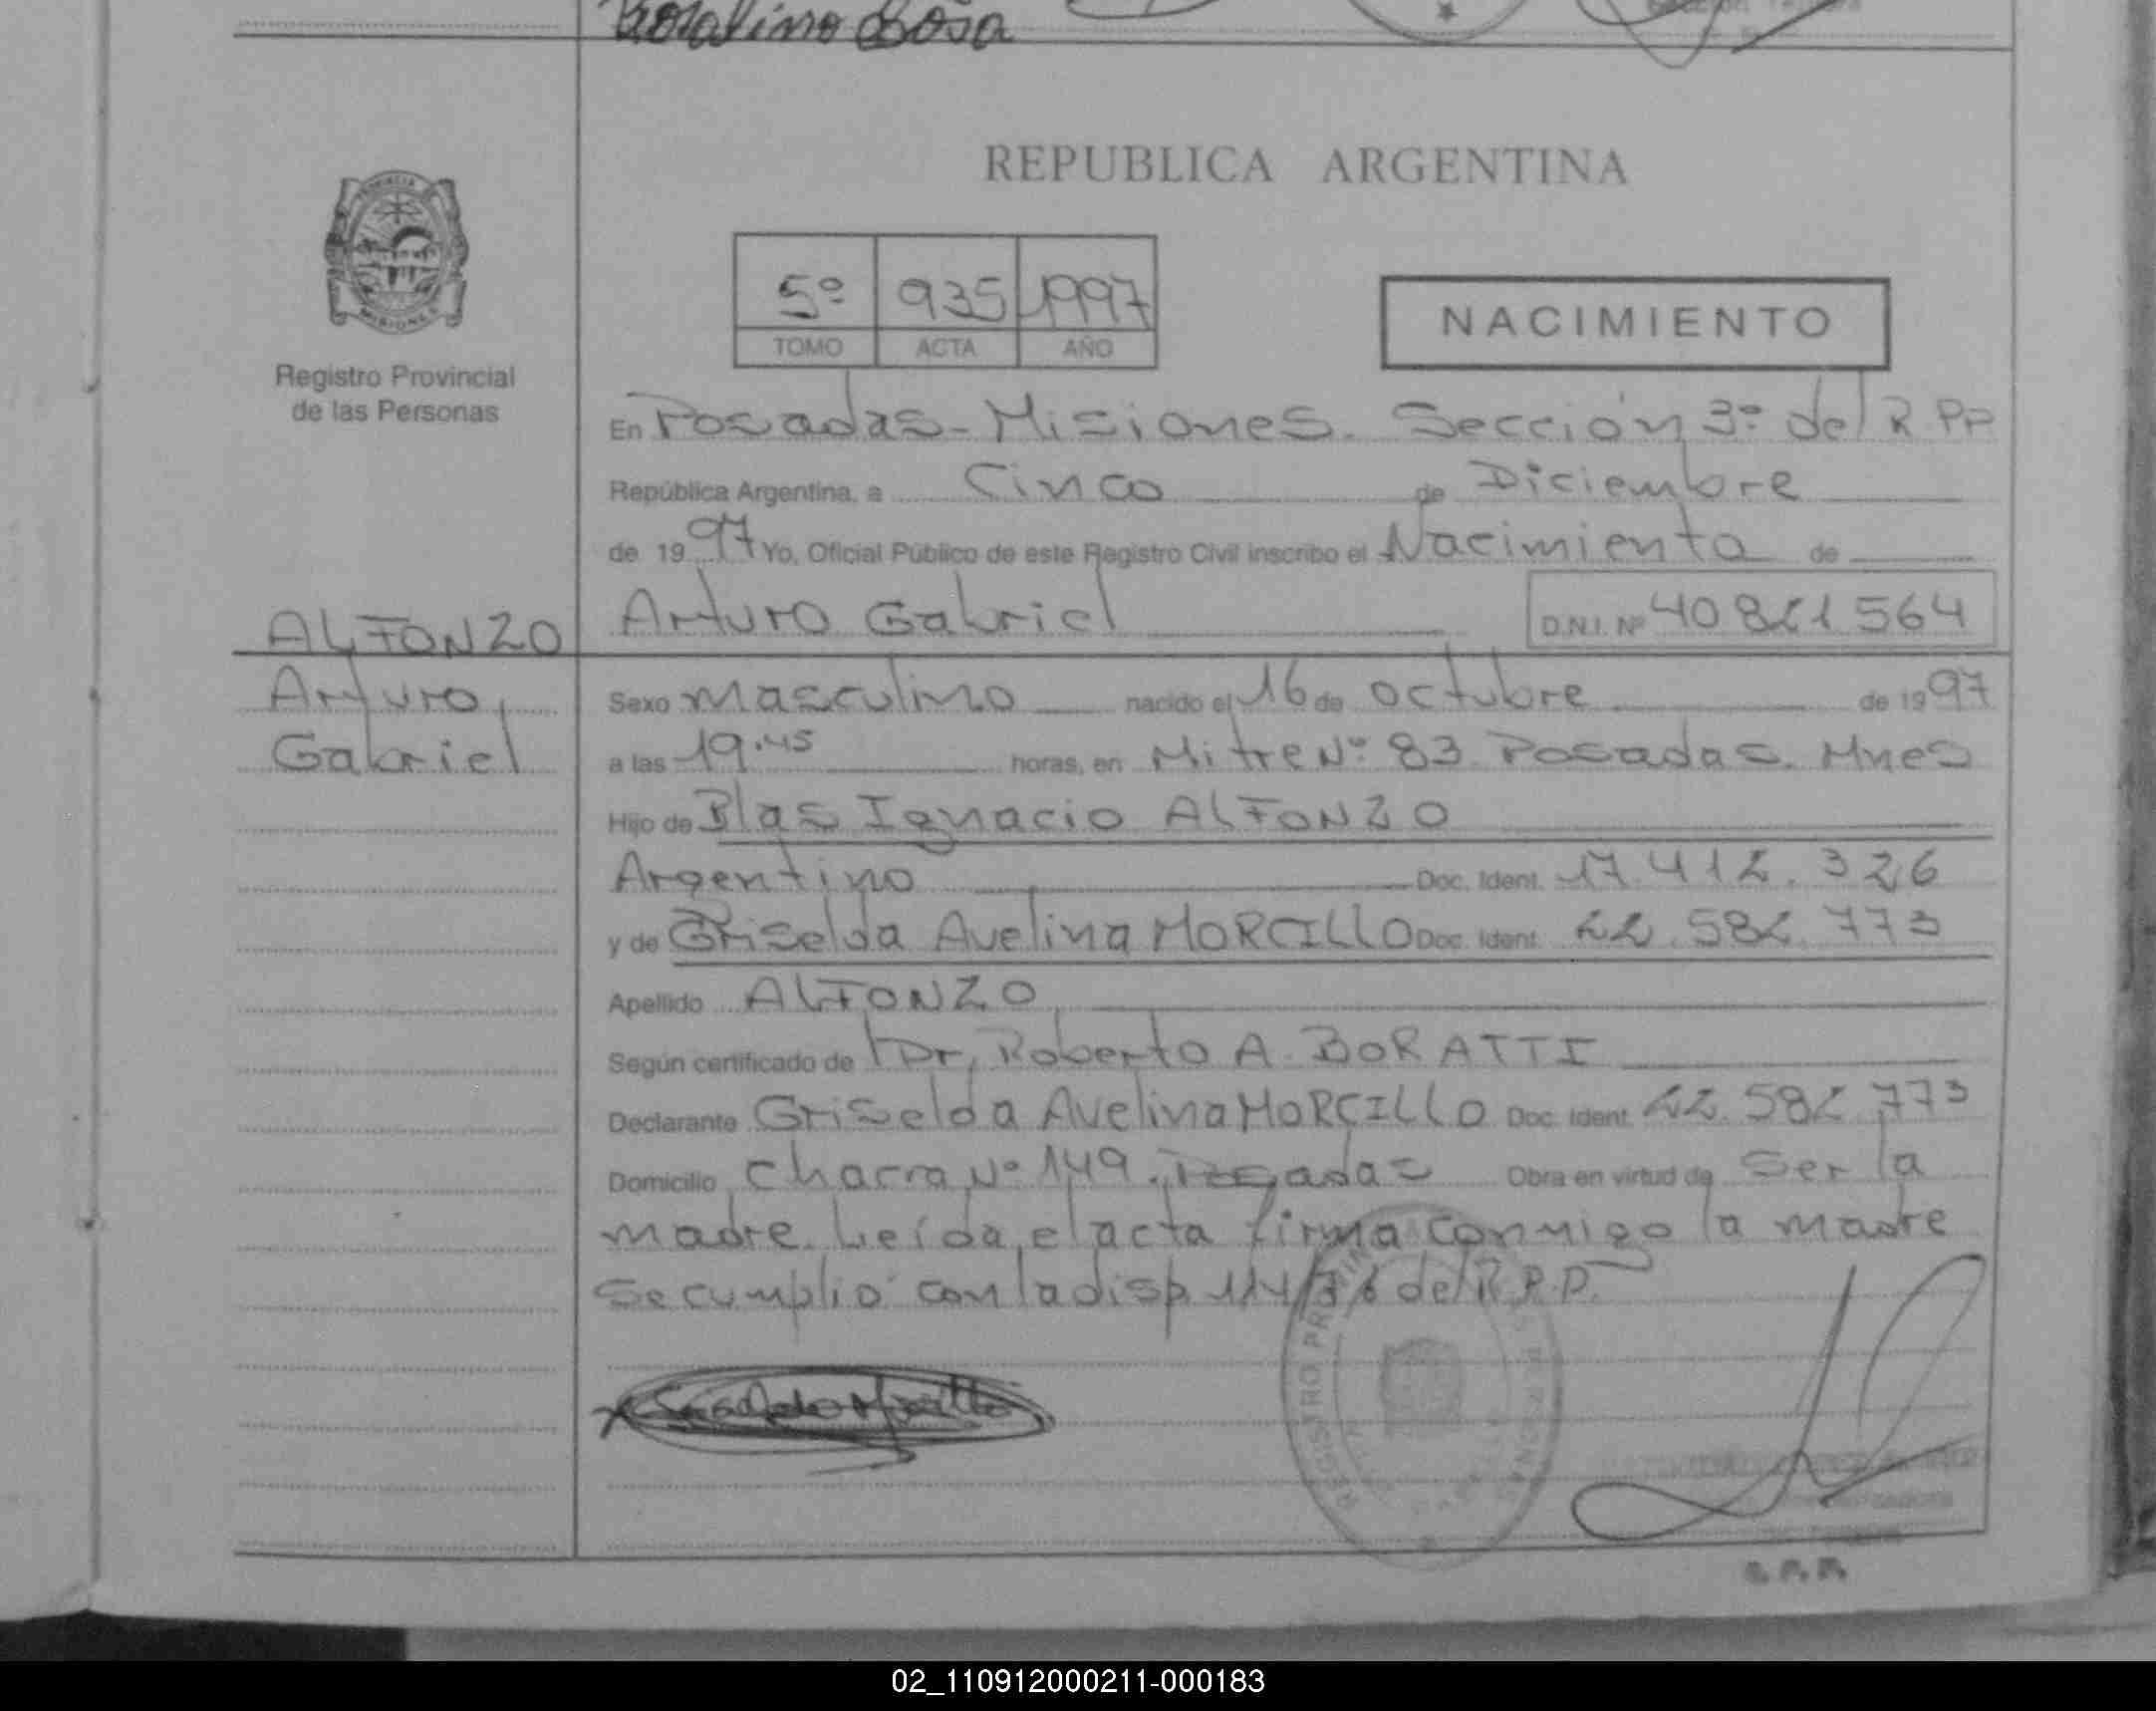 REPUBLICA ARGENTINA
5º 935 1997
TOMO ACTA AÑO
NACIMIENTO
Registro Provincial
de las Personas
En Posadas - Misiones. Sección 3º del R.P.P
República Argentina, a Cinco de Diciembre
de 1997 Yo, Oficial Público de este Registro Civil inscribo el Nacimiento de
Arturo Gabriel D.N.I. Nº 40821564
ALFONZO
Arturo
Gabriel
Sexo masculino nacido el 16 de octubre de 1997
a las 19.45 horas, en Mitre Nº 83 Posadas. Mnes
Hijo de Blas Ignacio ALFONZO
Argentino Doc. Ident. 17.412.326
y de Griselda Avelina MORCILLO Doc. Ident. 22.582.773
Apellido ALFONZO
Según certificado de Dr. Roberto A. BORATTI
Declarante Griselda Avelina MORCILLO Doc. Ident. 22.582.773
Domicilio Chacra Nº 149. Posadas Obra en virtud de Ser la
madre. Leída el acta firma conmigo la madre
Se cumplió con la disp. 114/76 del R.P.P.
REGISTRO
02_110912000211-000183